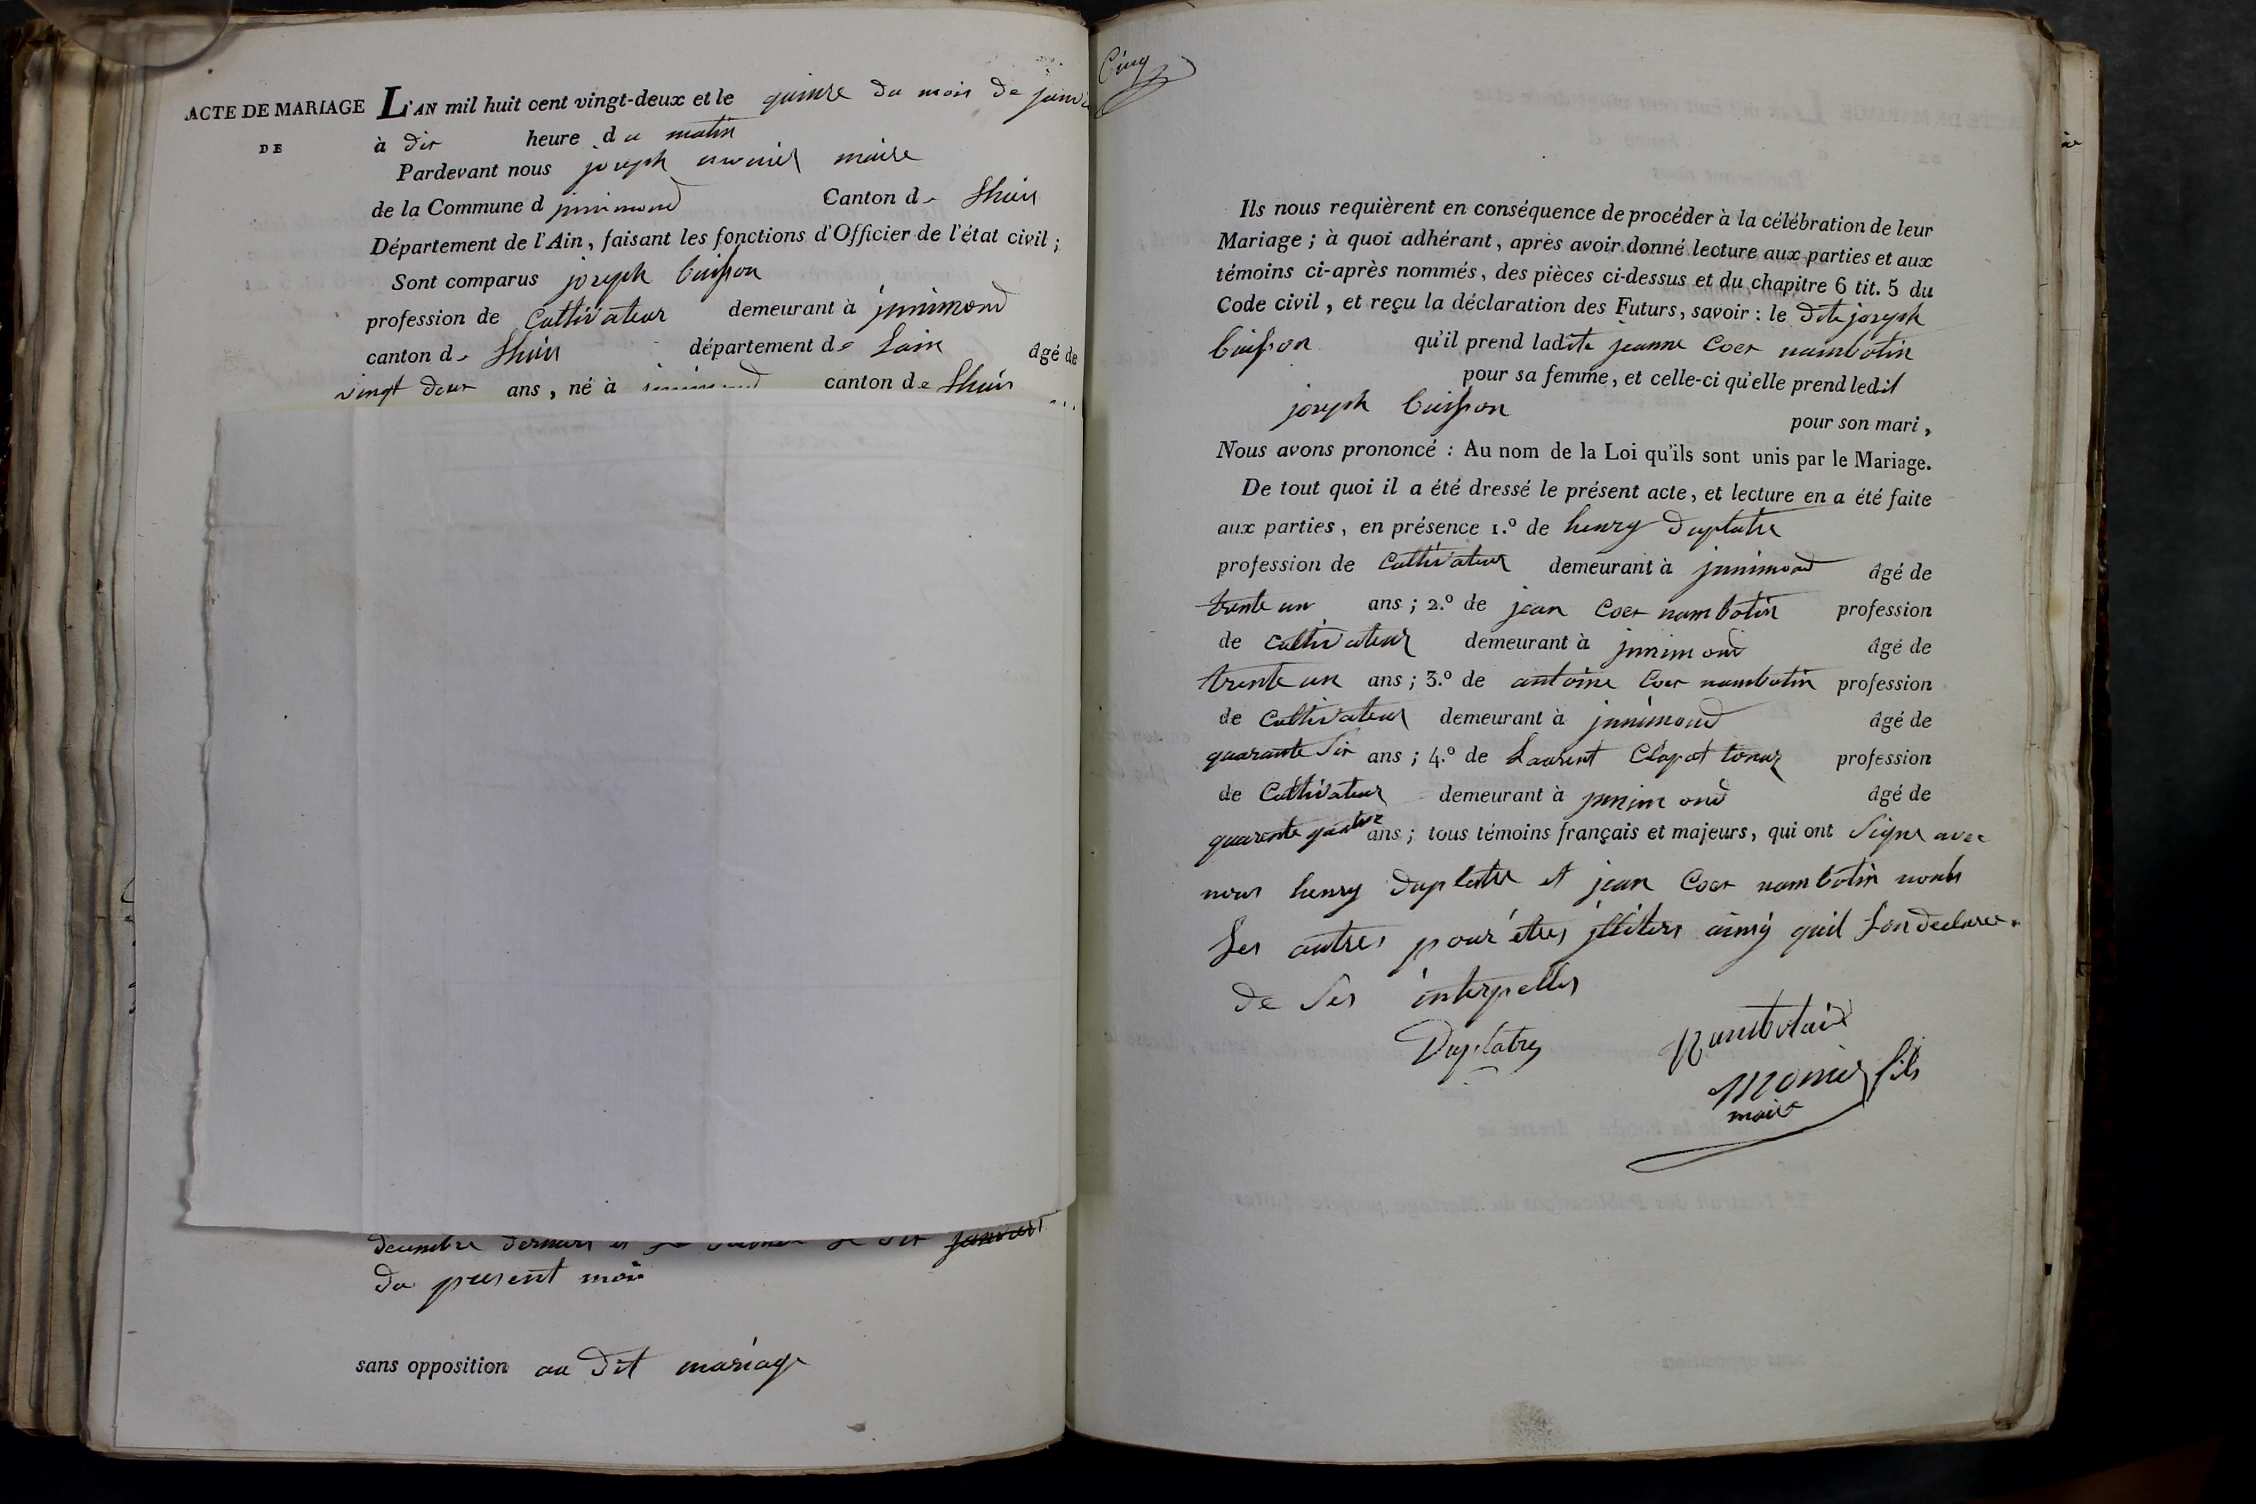 ACTE DE MARIAGE
DE
L'AN mil huit cent vingt-deux et le quinze du mois de janv
à dix heure du matin
Pardevant nous joseph maire
de la Commune d jnnimond Canton de Lhuis
Département de l'Ain, faisant les fonctions d'Officier de l'état civil ;
Sont comparus joseph buisson
profession de Cultivateur demeurant à jnnimond
canton de Lhuis département de Lain âgé de
vingt deux ans, né à canton de Lhuis
decembre dernier et le six janvier
du present mois
sans opposition au dit mariage
Cinq
Ils nous requièrent en conséquence de procéder à la célébration de leur
Mariage ; à quoi adhérant, après avoir donné lecture aux parties et aux
témoins ci-après nommés, des pièces ci-dessus et du chapitre 6 tit. 5 du
Code civil, et reçu la déclaration des Futurs, savoir : le dite joseph
buisson qu'il prend ladite jeanne Coer nambotin
pour sa femme, et celle-ci qu'elle prend ledit
joseph buisson pour son mari,
Nous avons prononcé : Au nom de la Loi qu'ils sont unis par le Mariage.
De tout quoi il a été dressé le présent acte, et lecture en a été faite
aux parties, en présence 1.º de henry duplatre
profession de Cultivateur demeurant à jnnimond âgé de
trente un ans ; 2.º de jean Coer nambotin profession
de Cultivateur demeurant à jnnimond âgé de
trente un ans ; 3.º de antoine Coer nambotin profession
de Cultivateur demeurant à jnnimond âgé de
quarante six ans ; 4.º de Laurent Clapot profession
de Cultivateur demeurant à jnnimond âgé de
quarente quatre ans ; tous témoins français et majeurs, qui ont signe avec
nous henry duplatre et jean Coer nambotin
Les autres pour êtres jlliters ainsy quil Lon declare
de Ses interpelles
Duplatre
Nambotin
Monier fils
maire